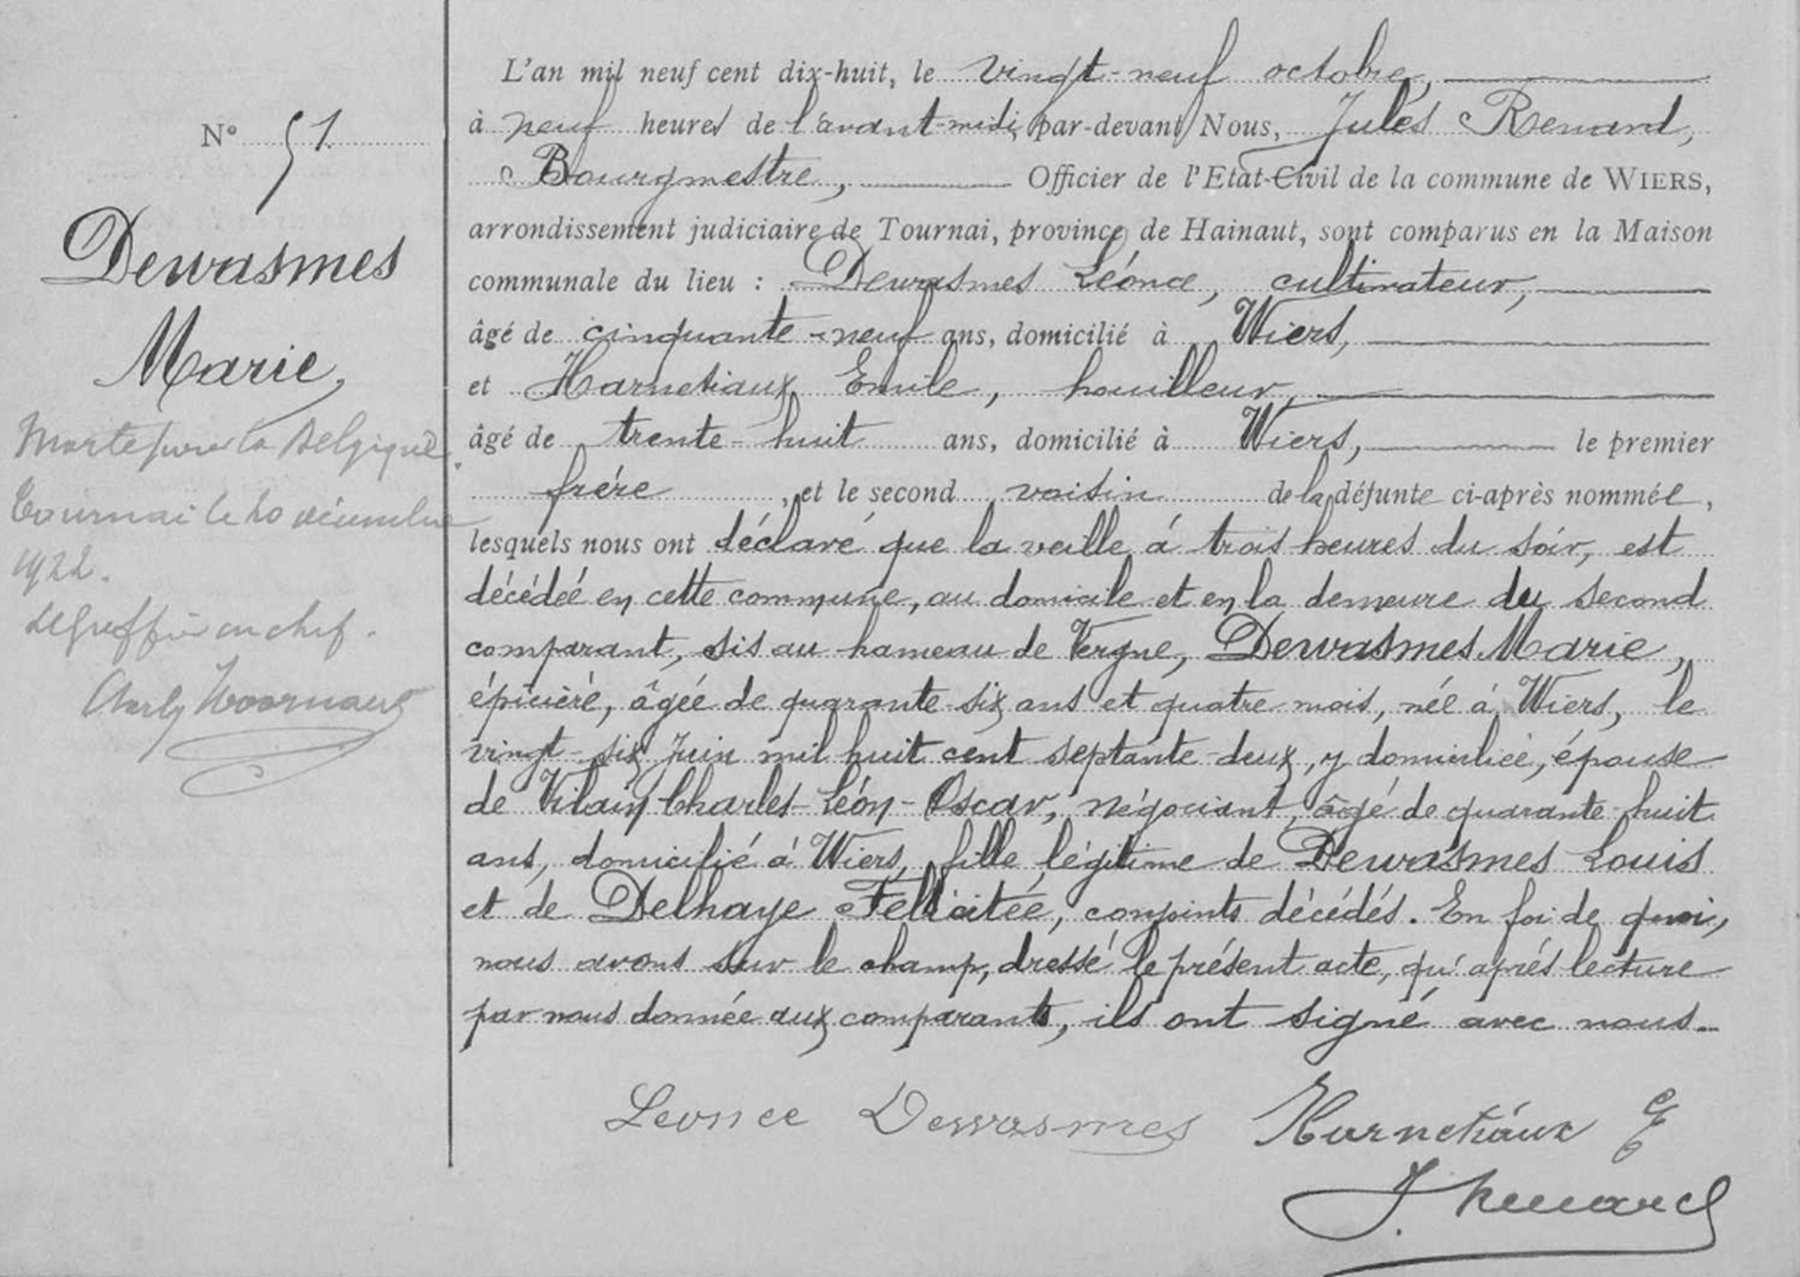 N° 51
Dewasmes
Marie,
Morte pour la Belgique.
Tournai le 20 décembre
1922.
Le Greffier en chef.
L'an mil neuf cent dix-huit, le vingt-neuf octobre,
à neuf heures de l'avant-midi, par-devant Nous, Jules Renard,
Bourgmestre, Officier de l'Etat-Civil de la commune de WIERS,
arrondissement judiciaire de Tournai, province de Hainaut, sont comparus en la Maison
communale du lieu : Dewasmes Léonce, cultivateur,
âgé de cinquante-neuf ans, domicilié à Wiers,
et Harnetiaux Emile, houilleur,
âgé de trente-huit ans, domicilié à Wiers, le premier
frère, et le second voisin de la défunte ci-après nommée,
lesquels nous ont déclaré que la veille à trois heures du soir, est
décédée en cette commune, au domicile et en la demeure du second
comparant, sis au hameau de Vergne, Dewasmes Marie,
épicière, âgée de quarante-six ans et quatre mois, née à Wiers, le
vingt-six Juin mil huit cent septante-deux, y domiciliée, épouse
de Vilain Charles-Léon-Oscar, négociant, âgé de quarante-huit
ans, domicilié à Wiers, fille légitime de Dewasmes Louis
et de Delhaye Félicitée, conjoints décédés. En foi de quoi,
nous avons sur le champ, dressé le présent acte, qu'après lecture
par nous donnée aux comparants, ils ont signé avec nous.
Leonce Dewasmes Harnetiaux E
J. Renard